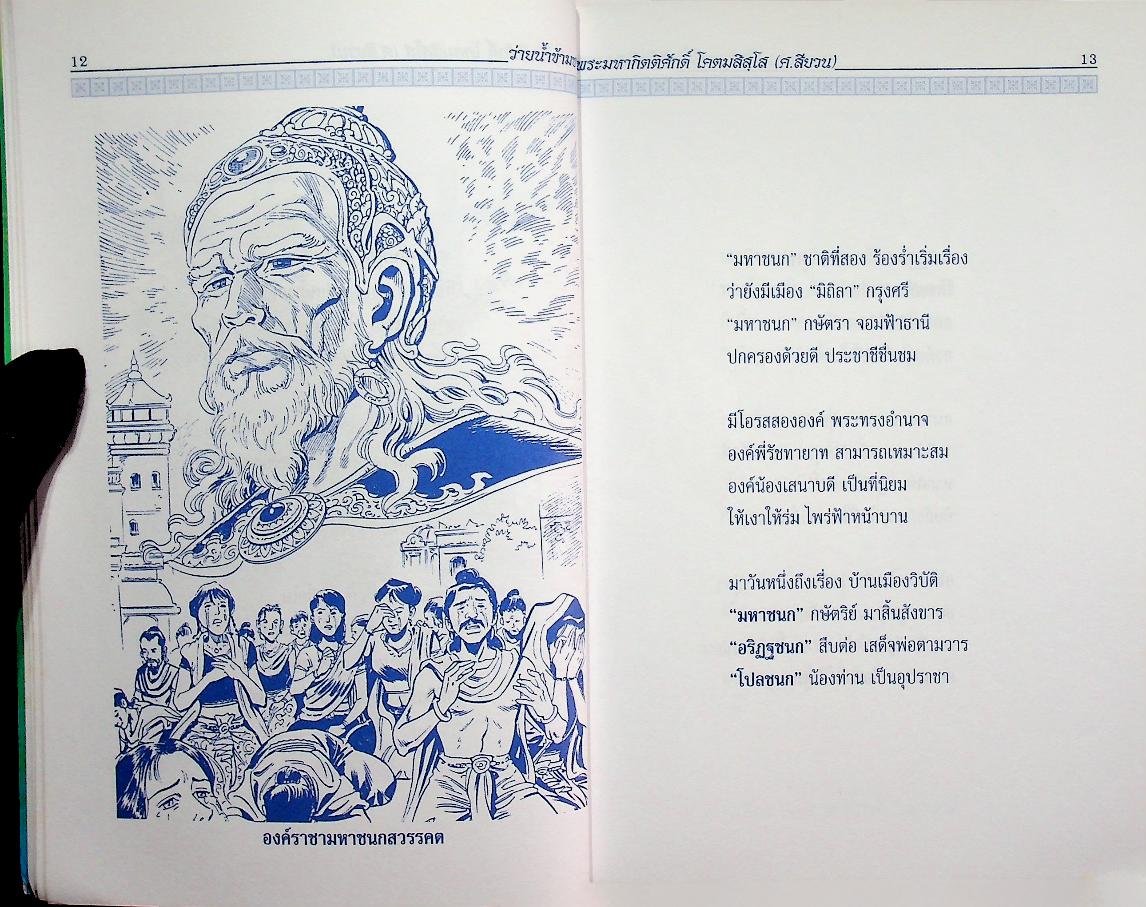 12
ว่ายน้ำข้าม
องค์ราชามหาชนกสวรรคต
พระมหากิตติศักดิ์ โคตมสิสฺโส (ศ.สียวน)
13
“มหาชนก” ชาติที่สอง ร้องร่ำเริ่มเรื่อง
ว่ายังมีเมือง “มิถิลา” กรุงศรี
“มหาชนก” กษัตรา จอมฟ้าธานี
ปกครองด้วยดี ประชาชีชื่นชม
มีโอรสสององค์ พระทรงอำนาจ
องค์พี่รัชทายาท สามารถเหมาะสม
องค์น้องเสนาบดี เป็นที่นิยม
ให้เงาให้ร่ม ไพร่ฟ้าหน้าบาน
มาวันหนึ่งถึงเรื่อง บ้านเมืองวิบัติ
“มหาชนก” กษัตริย์ มาสิ้นสังขาร
“อริฏฐชนก” สืบต่อ เสด็จพ่อตามวาร
“โปลชนก” น้องท่าน เป็นอุปราชา